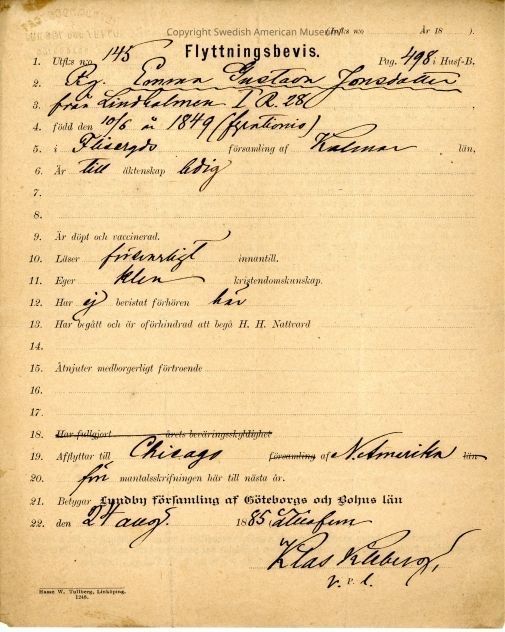 Copyright Swedish American Museum
(Inflks n:o År 18 ).
Flyttningsbevis.
1. Utflks n:o 145 Pag. 498 i Husf-B.
2. Pig. Emma Gustava Jonsdotter
3. från Lindholmen I R. 28
4. född den 10/6 år 1849 (fyrationio)
5. i församling af Kalmar län,
6. Är till äktenskap ledig
7.
8.
9. Är döpt och vaccinerad.
10. Läser försvarligt innantill.
11. Eger klen kristendomskunskap.
12. Har ej bevistat förhören här
13. Har begått och är oförhindrad att begå H. H. Nattvard
14.
15. Åtnjuter medborgerligt förtroende
16.
17.
18. Har fullgjort årets beväringsskyldighet
19. Afflyttar till Chicago församling af N. Amerika län
20. för mantalsskrifningen här till nästa år.
21. Betygar Lundby församling af Göteborgs och Bohus län
22. den 24 aug. 1885
Klas
v. P. l.
Hasse W. Tullberg, Linköping.
1248.